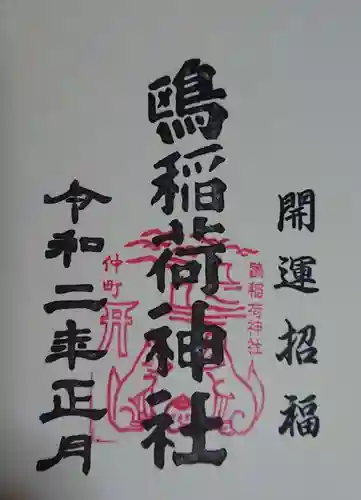 開運招福
鴎稲荷神社
令和二年正月
鴎稲荷神社
仲町